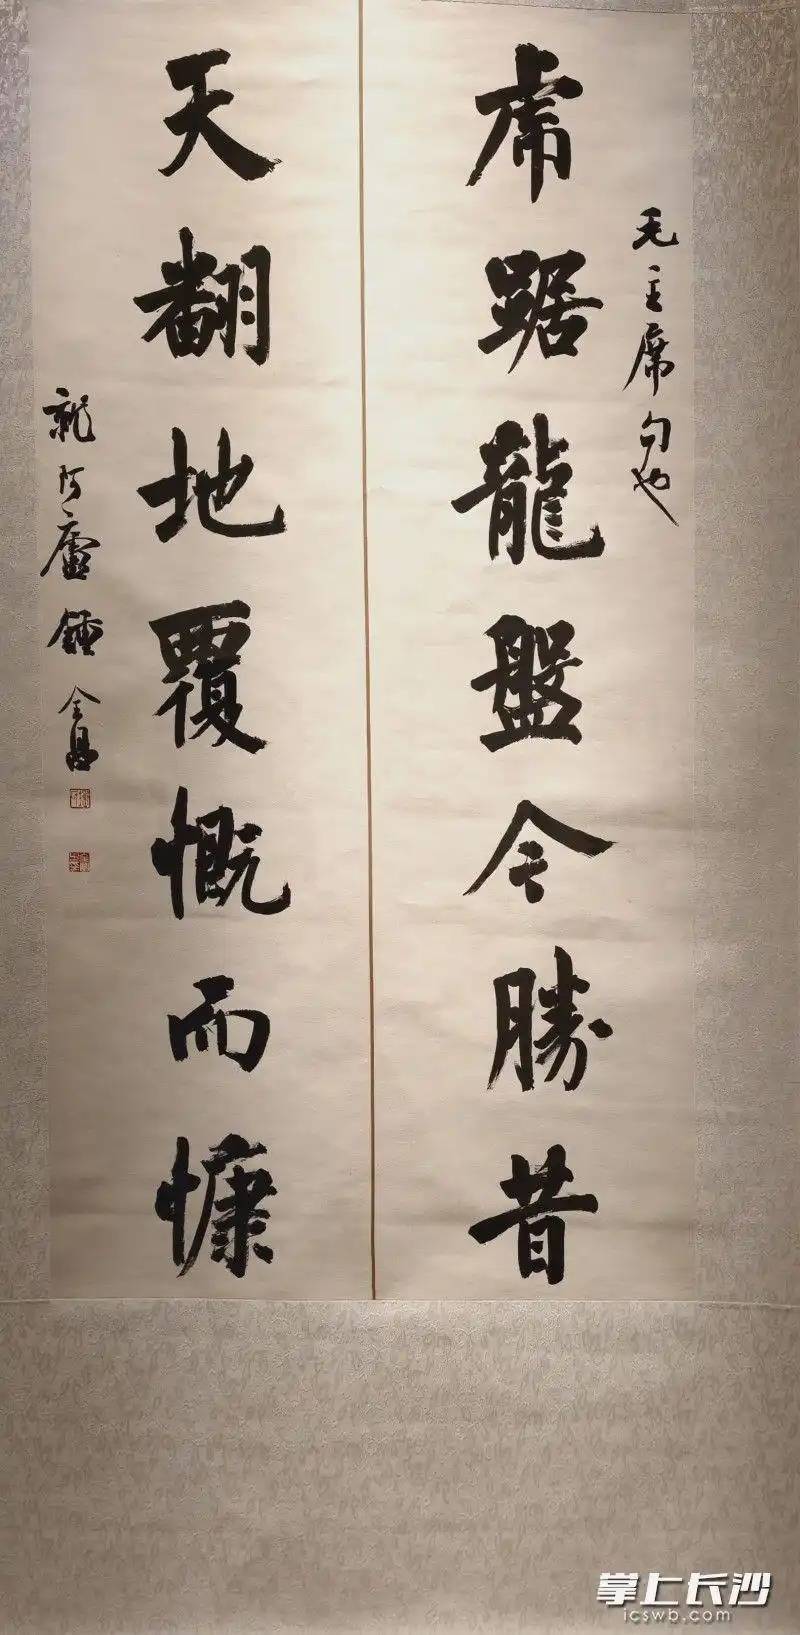 毛主席句也
虎踞龍盤今勝昔
天翻地覆慨而慷
廬鍾全昌
掌上长沙
icswb.com